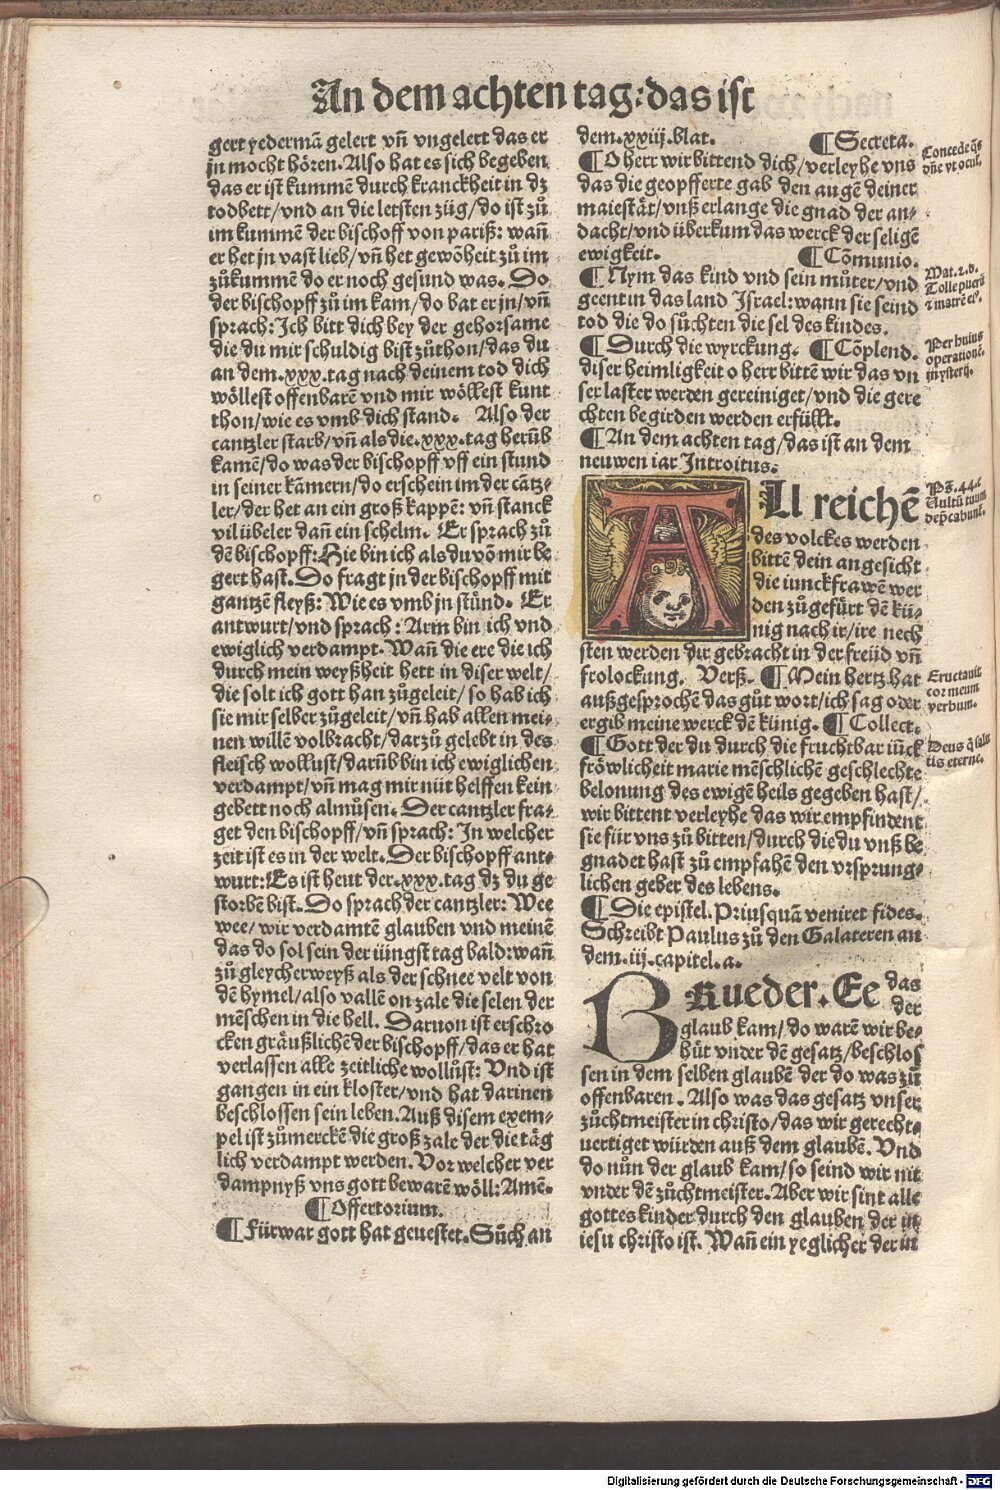 An dem achten tag:das ist
gert yedermā gelert vn̄ vngelert das er
jn mocht hören. Also hat es sich begeben
das er ist kummē durch kranckheit in dz
todbett/vnd an die letsten züg/do ist zů
im kummē der bischoff von pariß: wan̄
er het jn vast lieb/vn̄ het gewōheit zů im
zůkummē do er noch gesund was. Do
der bischopff zů im kam/do bat er jn/vn̄
sprach:Ich bitt dich bey der gehorsame
die du mir schuldig bist zůthon/das du
an dem.xxx.tag nach deinem tod dich
wöllest offenbarē vnd mir wöllest kunt
thon/wie es vmb dich stand. Also der
cantzler starb/vn̄ als die.xxx.tag herūb
kamē/do was der bischopff vff ein stund
in seiner kāmern/do erschein im der cātz-
ler/der het an ein groß kappē: vn̄ stanck
vil übeler dan̄ ein schelm. Er sprach zů
dē bischopff:Hie bin ich als du vō mir be
gert hast. Do fragt jn der bischopff mit
gantzē fleyß: Wie es vmb jn stünd. Er
antwurt/vnd sprach: Arm bin ich vnd
ewiglich verdampt. Wan̄ die ere die ich
durch mein weyßheit hett in diser welt/
die solt ich gott han zůgeleit/ so hab ich
sie mir selber zůgeleit/vn̄ hab allen mei-
nen willē volbracht/darzů gelebt in des
fleisch wollust/darūb bin ich ewiglichen
verdampt/vn̄ mag mir nüt helffen kein
gebett noch almůsen. Der cantzler fra-
get den bischopff/vn̄ sprach: In welcher
zeit ist es in der welt. Der bischopff ant-
wurt:Es ist heut der.xxx.tag dz du ge
storbē bist. Do sprach der cantzler: Wee
wee/ wir verdamtē glauben vnd meinē
das do sol sein der iüngst tag bald:wan̄
zů gleycherweyß als der schnee velt von
dē hymel/also vallē on zale die selen der
mēschen in die hell. Daruon ist erschro
cken gräußlichē der bischopff/das er hat
verlassen alle zeitliche wollüst: Vnd ist
gangen in ein kloster/vnd hat darinen
beschlossen sein leben. Auß disem exem-
pel ist zůmerckē die groß zale der die täg
lich verdampt werden. Vor welcher ver
dampnyß vns gott bewarē wöll: Amē.
¶Offertorium.
¶Fürwar gott hat geuestet. Sůch an
dem.xxiij.blat. ¶Secreta.
¶O herr wir bittend dich/verleyhe vns
das die geopfferte gab den augē deiner
maiestät/vnß erlange die gnad der an-
dacht/vnd überkum das werck der seligē
ewigkeit. ¶Cōmunio.
¶Nym das kind vnd sein můter/vnd
geent in das land Israel:wann sie seind
tod die do sůchten die sel des kindes.
¶Durch die wyrckung. ¶Cōplend.
diser heimligkeit o herr bittē wir das vn
ser laster werden gereiniget/vnd die gere
chten begirden werden erfüllt.
¶An dem achten tag/das ist an dem
neuwen iar Introitus.
All reichē
des volckes werden
bittē dein angesicht
die iunckfrawē wer
den zůgefürt dē kü-
nig nach ir/ire nech
sten werden dir gebracht in der freüd vn̄
frolockung. Verß. ¶Mein hertz hat
außgesprochē das gůt wort/ich sag oder
ergib meine werck dē künig. ¶Collect.
¶Gott der du durch die fruchtbar iūck
fröwlicheit marie mēschlichē geschlechte
belonung des ewigē heils gegeben hast/
wir bittent verleyhe das wir empfindent
sie für vns zů bitten/durch die du vnß be
gnadet hast zů empfahē den vrsprung-
lichen geber des lebens.
¶Die epistel. Priusquā veniret fides.
Schreibt Paulus zů den Galateren an
dem.iij.capitel.a.
BRueder. Ee das
der
glaub kam/do warē wir be-
hůt vnder dē gesatz/beschlos
sen in dem selben glaubē der do was zů
offenbaren. Also was das gesatz vnser
zůchtmeister in christo/das wir gerecht-
uertiget würden auß dem glaubē. Vnd
do nůn der glaub kam/so seind wir nit
vnder dē zůchtmeister. Aber wir sint alle
gottes kinder durch den glauben der in
iesu christo ist. Wan̄ ein yeglicher der in
Concede q̄s
dn̄e vt ocul.
Mat.2.d.
Tolle puerū
⁊ matrē eiꝰ.
Per huius
operationē.
mysterij.
Ps.44.c
Vultū tuum
dep̄cabunt.
Eructauit
cor meum
verbum.
Deus q̄ salu
tis eterne.
Digitalisierung gefördert durch die Deutsche Forschungsgemeinschaft - DFG